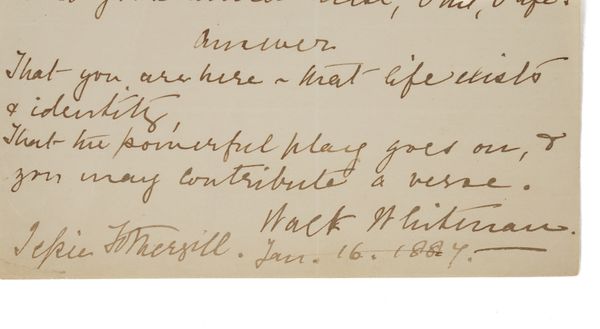 good amid these, O me, O life?
Answer
That you are here - that life exists
& identity,
That the powerful play goes on, &
you may contribute a verse.
Walt Whitman.
Jessie Fothergill. Jan. 16. 1887.